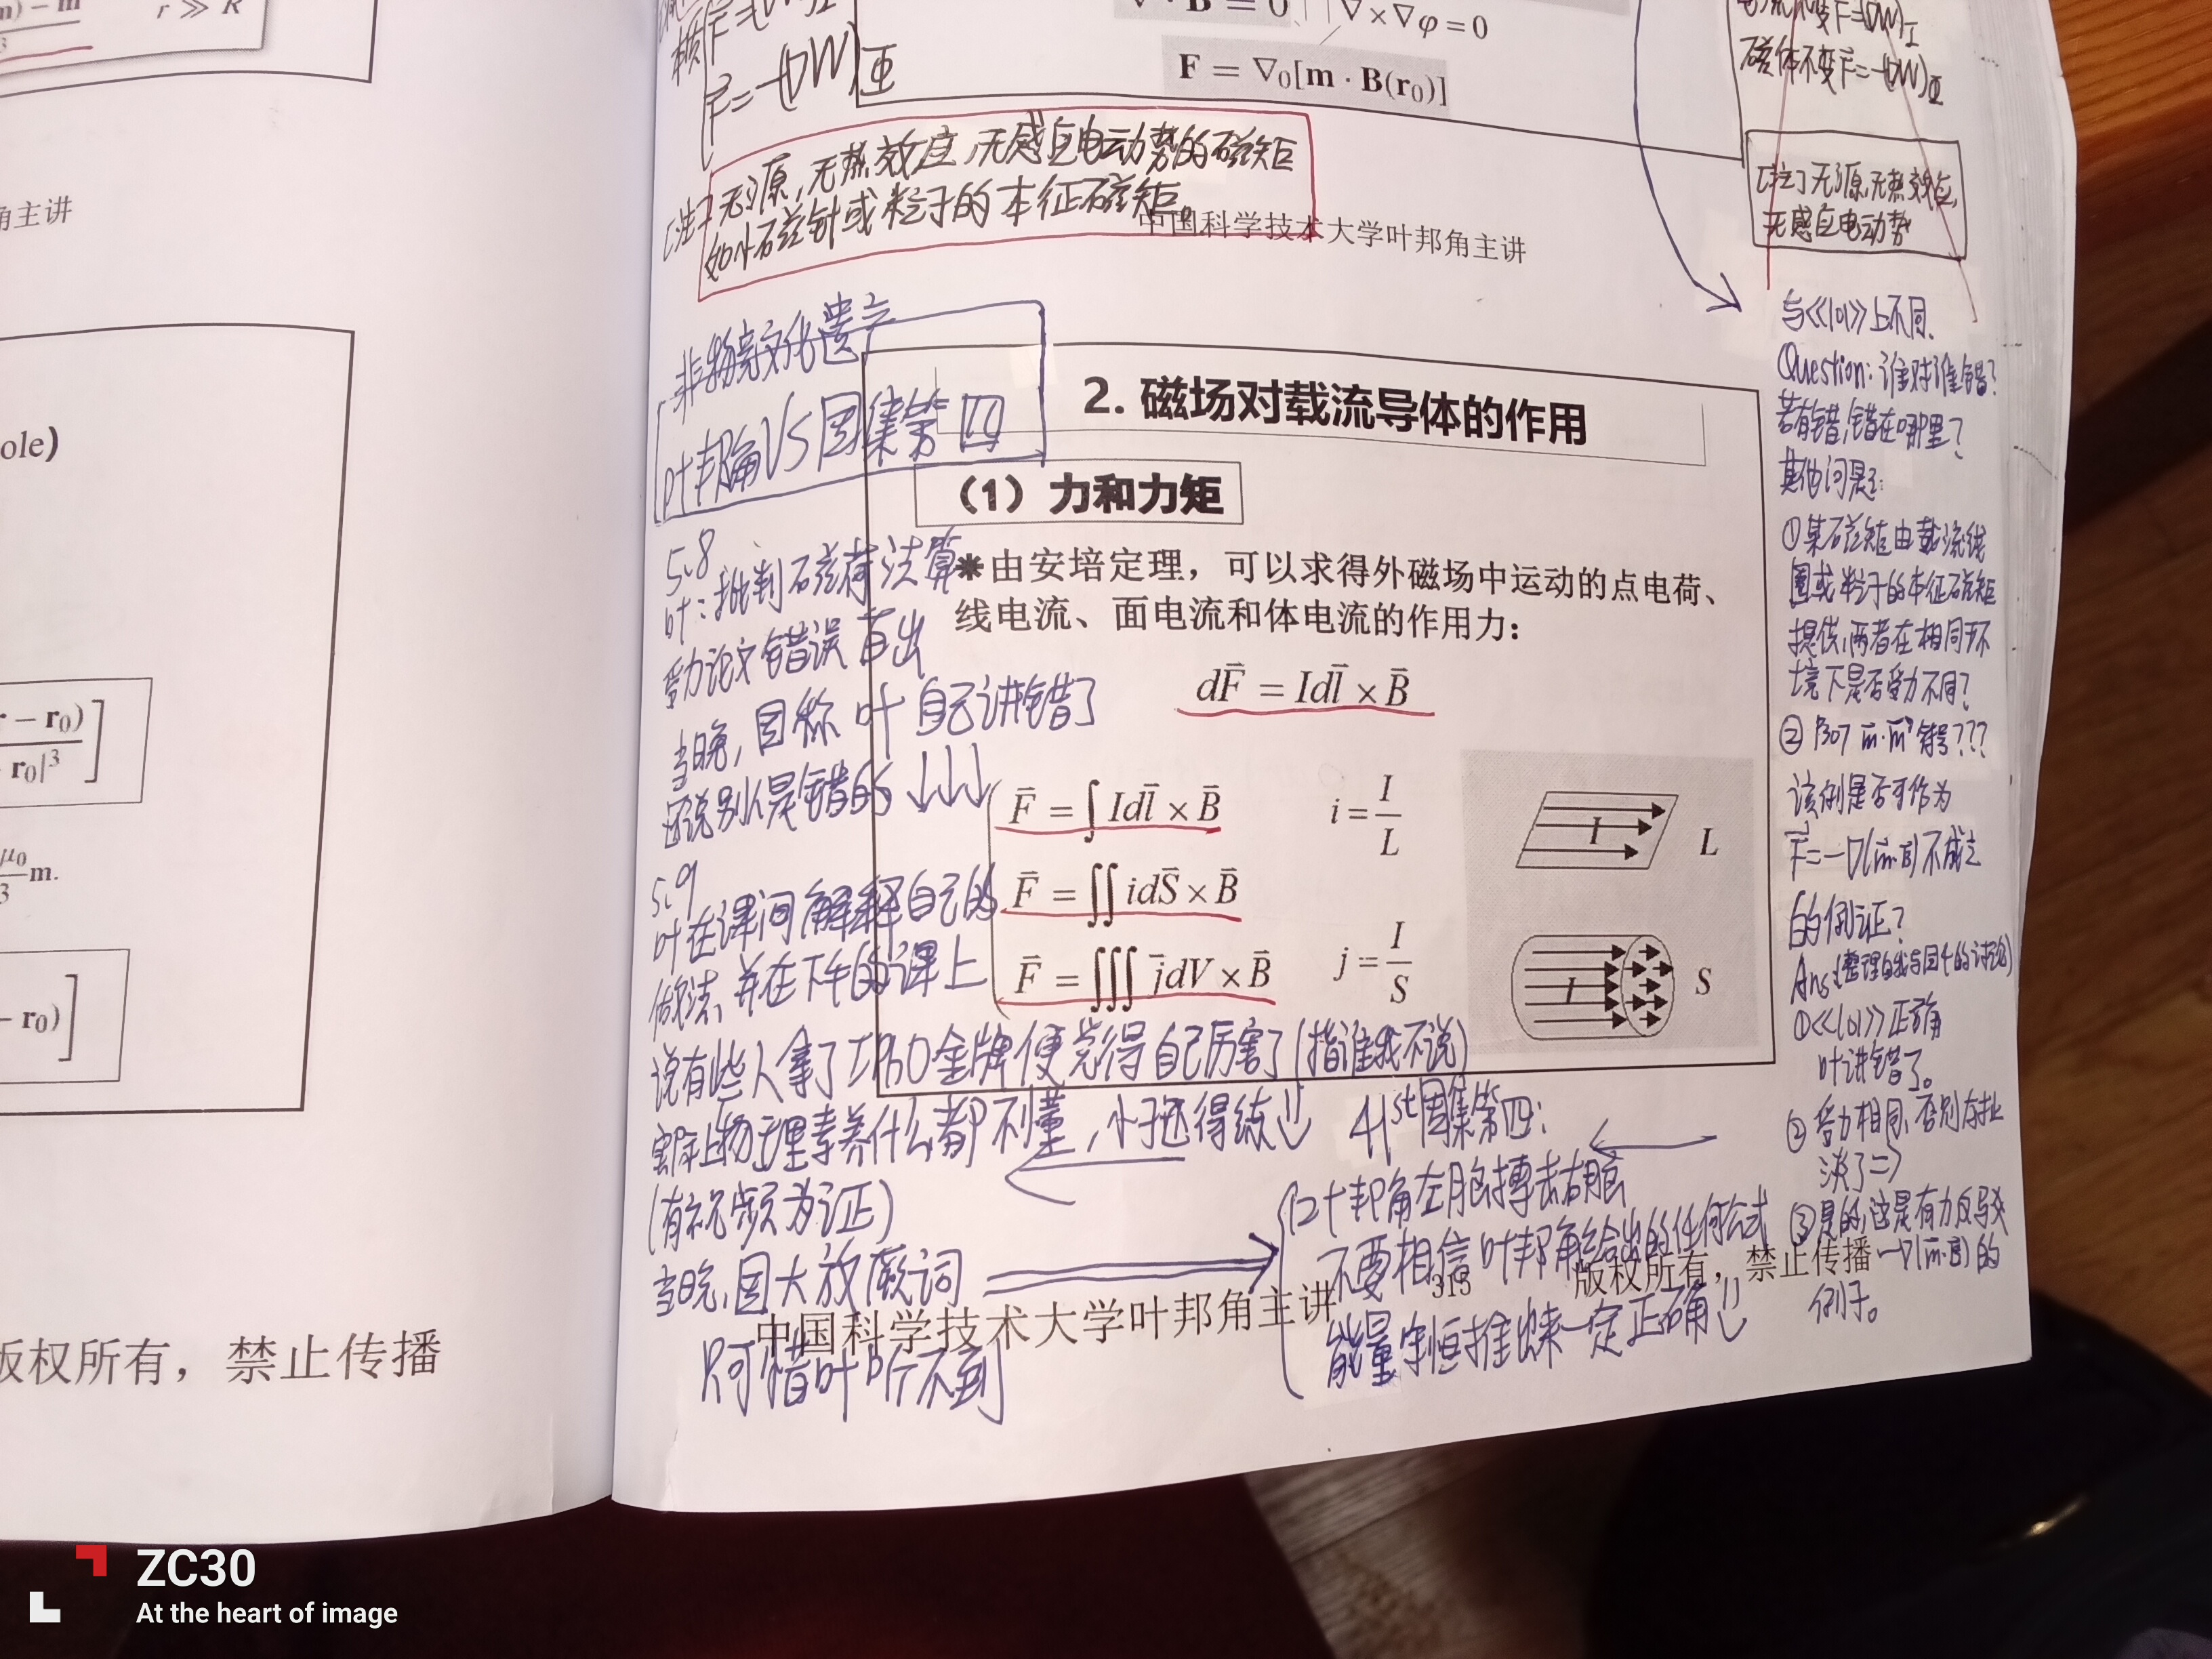 m) − m
r ≫ R
角主讲
ole)
r − r₀)
− r₀|³
μ₀
3 m.
− r₀)
版权所有，禁止传播
∇ · B = 0
∇×∇φ = 0
F = ∇₀[m · B(r₀)]
F̄=−(∇W)Φ
[注]无源,无热效应,无感自电动势的磁矩
如小磁针或粒子的本征磁矩。
中国科学技术大学叶邦角主讲
变F=(∇W)I
磁体不变F=−(∇W)Φ
[注]无源,无热效应,
无感自电动势
非物竞文化遗产
叶邦角VS国集第四
5.8
叶:批判磁荷法算
受力论文错误百出
当晚,国称叶自己讲错了
还说别人是错的↓↓↓
5.9
叶在课间解释自己的
做法,并在下午的课上
说有些人拿了IPhO金牌便觉得自己厉害了(指谁我不说)
实际上物理素养什么都不懂,小子还得练
(有视频为证)
当晚,国大放厥词
只可惜叶听不到
2. 磁场对载流导体的作用
（1）力和力矩
✱由安培定理，可以求得外磁场中运动的点电荷、
线电流、面电流和体电流的作用力：
dF̄ = Idl̄ × B̄
F̄ = ∫ Idl̄ × B̄
i = I/L
I
L
F̄ = ∬ idS̄ × B̄
F̄ = ∭ j̄dV × B̄
j = I/S
I
S
41st国集第四:
叶邦角左脑搏击右脑
不要相信叶邦角给出的任何公式
能量守恒推出来一定正确
中国科学技术大学叶邦角主讲
315
版权所有，禁止传播
与<<101>>上不同.
Question:谁对谁错?
若有错,错在哪里?
其他问题:
①某磁矩由载流线
圈或粒子的本征磁矩
提供,两者在相同环
境下是否受力不同?
② P307 m̄·m̄'符号???
该例是否可作为
F̄=−∇(m̄·B̄)不成立
的例证?
Ans(整理自我与国4的讨论)
①<<101>>正确
叶讲错了。
②受力相同,否则
③是的,这是有力反驳
−∇(m̄·B̄)的
例子。
ZC30
At the heart of image